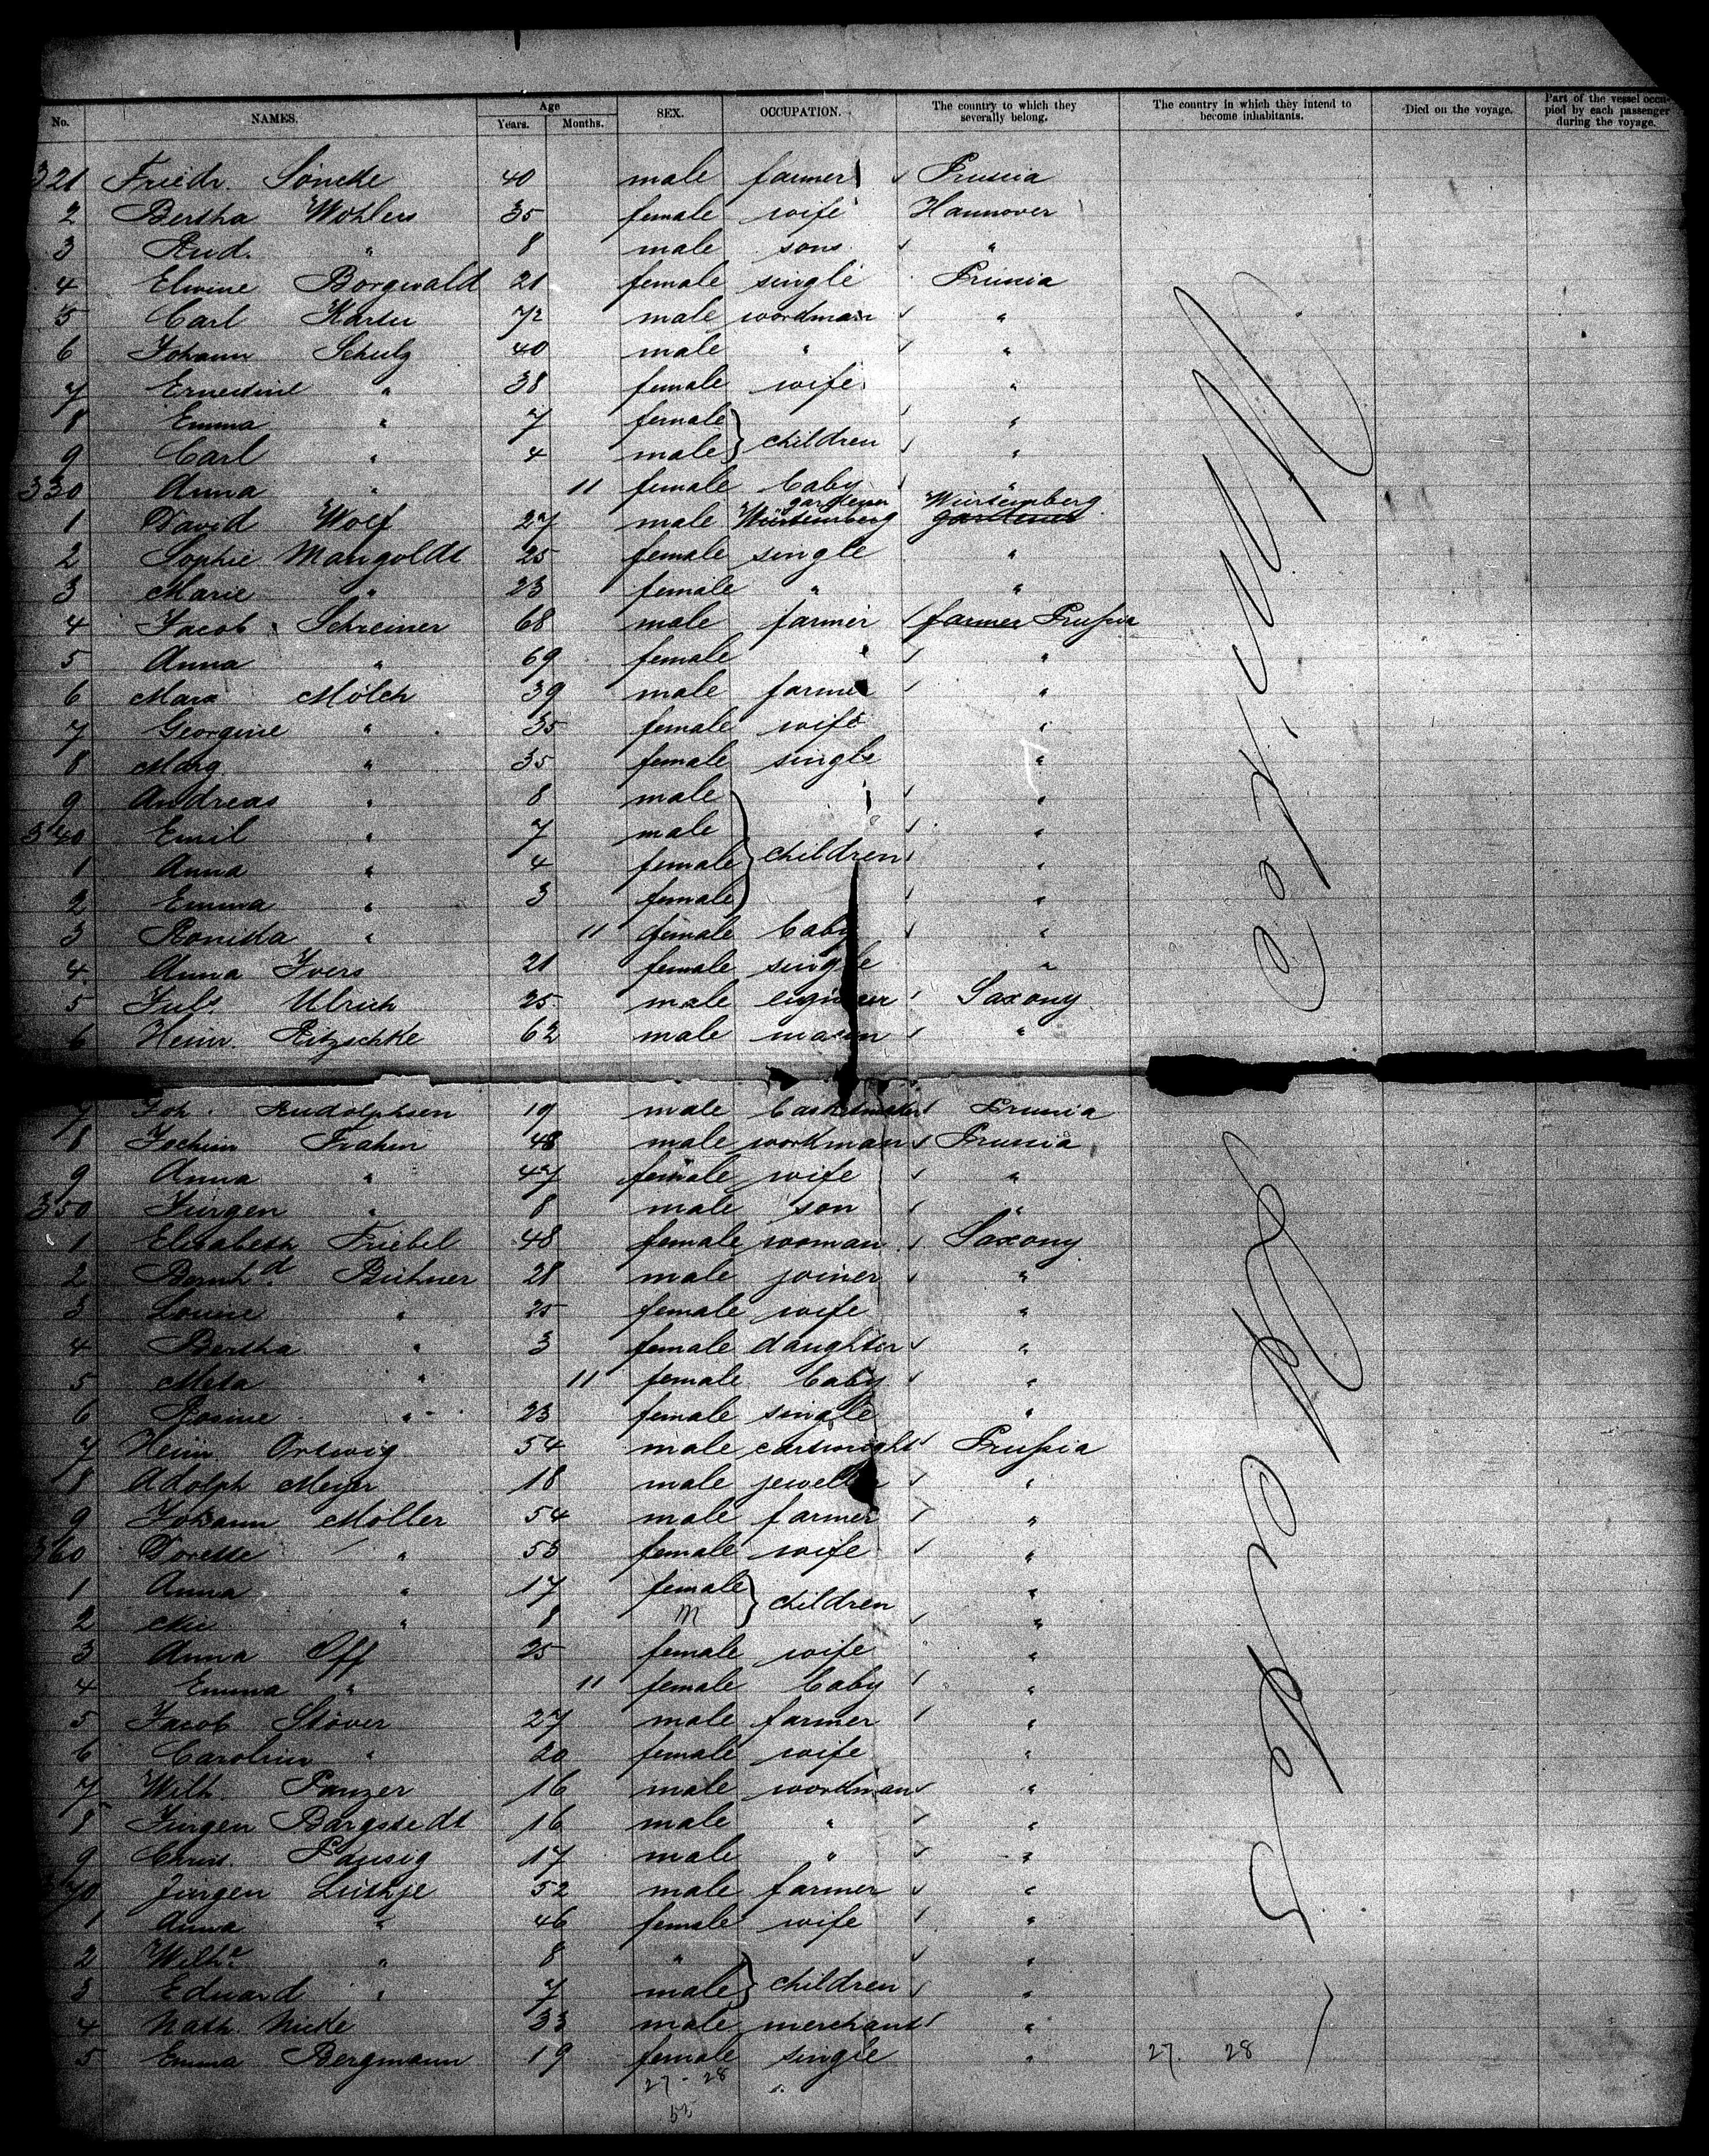 No. NAMES. Age Years. Months. SEX. OCCUPATION. The country to which they severally belong. The country in which they intend to become inhabitants. Died on the voyage. Part of the vessel occupied by each passenger during the voyage.
321 Friedr. Söncke 40 male farmer Prussia
2 Bertha Wöhlers 35 female wife Hannover
3 Rud. " 8 male sons "
4 Elwine Borgwald 21 female single Prussia
5 Carl Karsten 72 male workman "
6 Johann Schulz 40 male " "
7 Ernestine " 38 female wife "
8 Emma " 7 female "
9 Carl " 4 male children "
330 Anna " 11 female baby "
1 David Wolf 27 male Würtemberg gardener Würtemberg gardener
2 Sophie Mangoldt 25 female single "
3 Marie " 23 female " "
4 Jacob Schreiner 68 male farmer farmer Prussia
5 Anna " 69 female " "
6 Marx Mölck 39 male farmer "
7 Georgine " 35 female wife "
8 Marg. " 35 female single "
9 Andreas " 8 male "
340 Emil " 7 male "
1 Anna " 4 female children "
2 Emma " 3 female "
3 Ronika " 11 female baby "
4 Anna Ivers 21 female single "
5 Juls. Ulrich 25 male Saxony
6 Heinr. Ritzschke 62 male mason "
7 Joh. Rudolphsen 19 male Prussia
8 Jochim Frahm 48 male workman Prussia
9 Anna " 47 female wife "
350 Jürgen " 8 male son "
1 Elisabeth Friebel 48 female woman Saxony
2 Bernhd. Bühner 28 male joiner "
3 Louise " 25 female wife "
4 Bertha " 3 female daughter "
5 Meta " 11 female baby "
6 Rosine " 23 female single "
7 Heinr. Ortwig 54 male cartwright Prussia
8 Adolph Meyer 18 male jeweller "
9 Johann Möller 54 male farmer "
360 Dorette " 53 female wife "
1 Anna " 17 female children "
2 " 8 M "
3 Anna Off 25 female wife "
4 Emma " 11 female baby "
5 Jacob Stöver 27 male farmer "
6 Carolin " 20 female wife "
7 Wilh. Panzer 16 male workman "
8 Jürgen Bargstedt 16 male " "
9 Christ. 17 male " "
370 Jürgen Lüthje 52 male farmer "
1 Anna " 46 female wife "
2 Wilhe. " 8 " "
3 Eduard " 7 male children "
4 Nath. Nicke 33 male merchant "
5 Emma Bergmann 19 female single " 27. 28
27 - 28
55